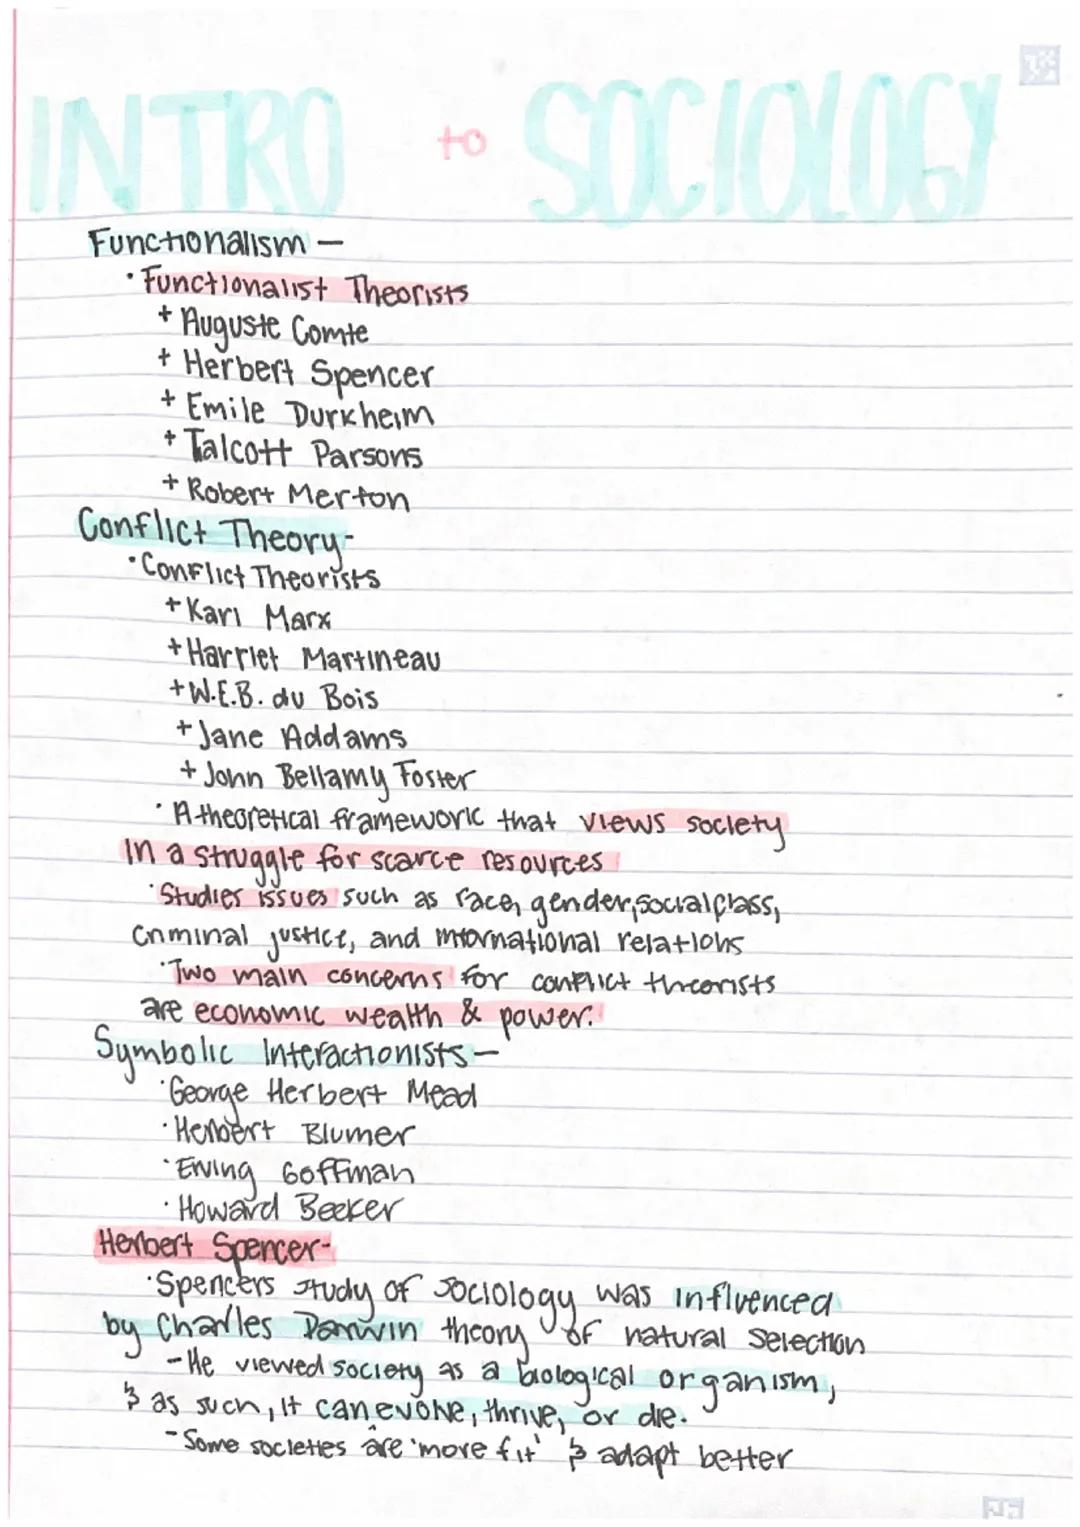 INTRO to SOCIOLOGY
Functionalism -
· Functionalist Theorists
+ Auguste Comte
+ Herbert Spencer
+ Emile Durkheim
+ Talcott Parsons
+ Robert Merton
Conflict Theory -
· Conflict Theorists
+ Karl Marx
+ Harriet Martineau
+ W.E.B. du Bois
+ Jane Addams
+ John Bellamy Foster
· A theoretical framework that views society
in a struggle for scarce resources
· Studies issues such as race, gender, social class,
criminal justice, and international relations
· Two main concerns for conflict theorists
are economic wealth & power.
Symbolic Interactionists -
· George Herbert Mead
· Herbert Blumer
· Erving Goffman
· Howard Becker
Herbert Spencer -
· Spencers study of sociology was influenced
by Charles Darwin theory of natural selection
- He viewed society as a biological organism,
& as such, it can evolve, thrive, or die.
- Some societies are 'more fit' & adapt better